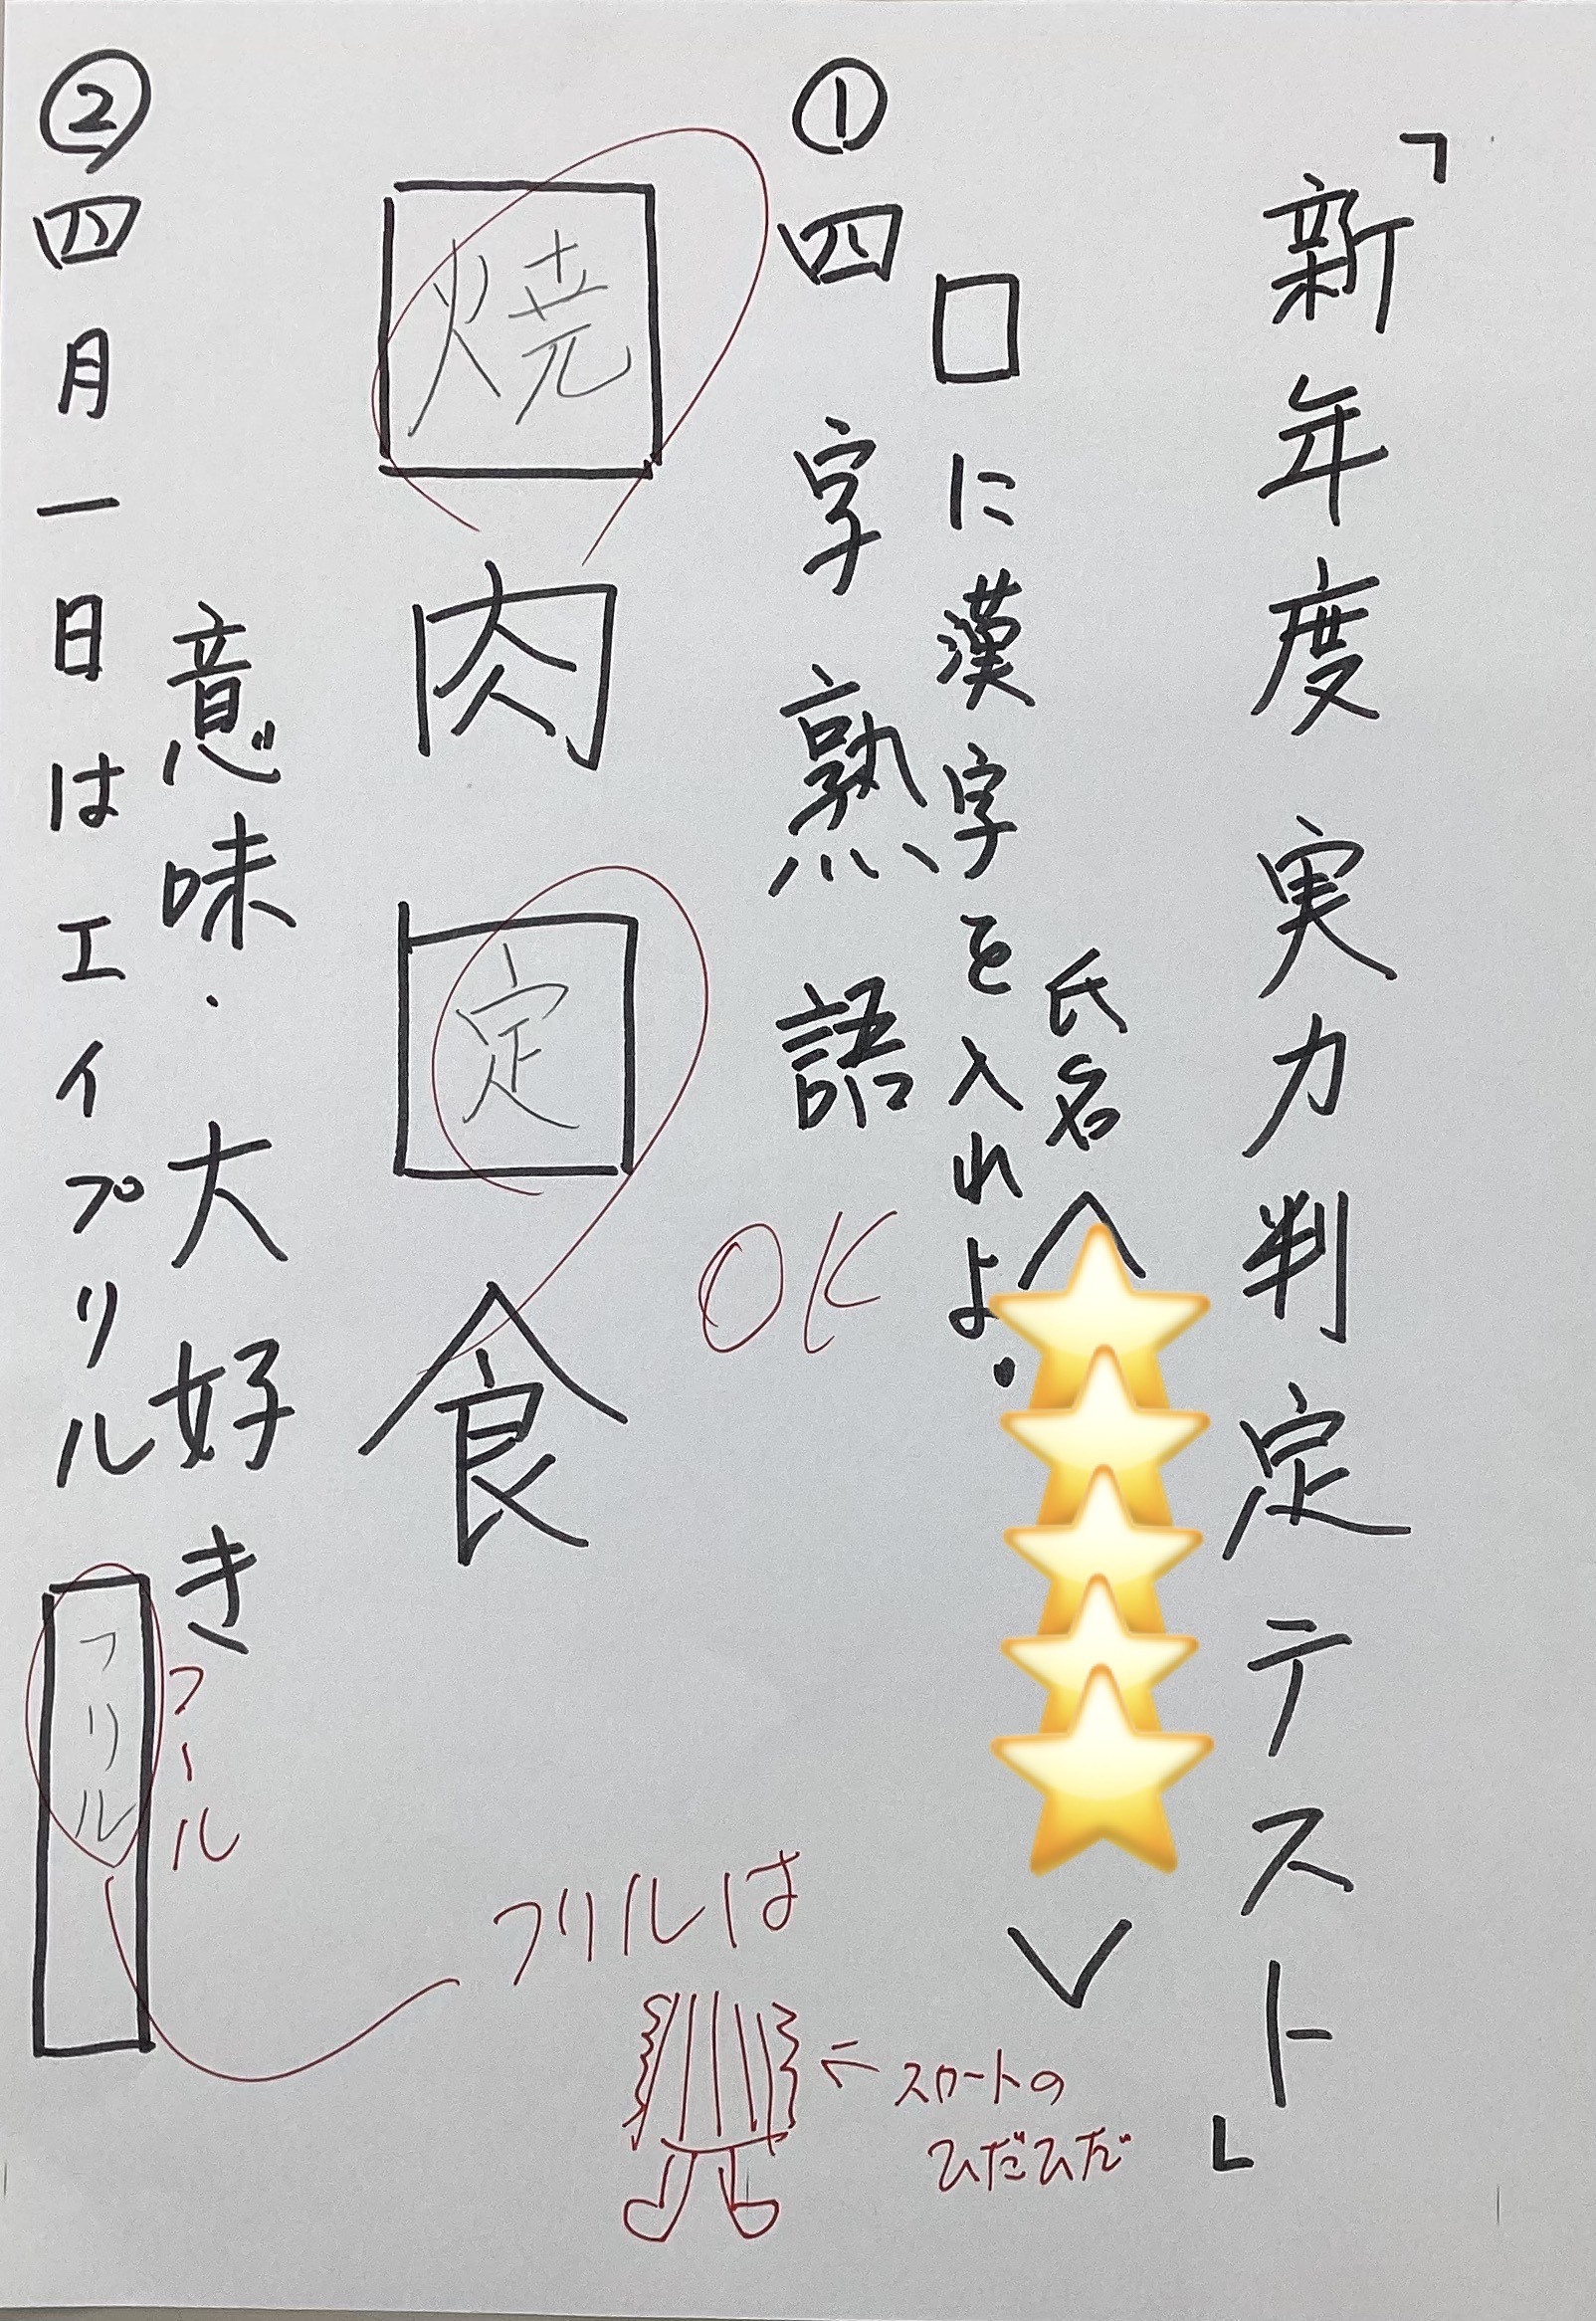 「新年度 実力判定テスト」
氏名<
>
□に漢字を入れよ.
①四字熟語
OK
焼肉定食
意味.大好き
②四月一日はエイプリル
フリル
フール
フリルは
←スカートの
ひだひだ